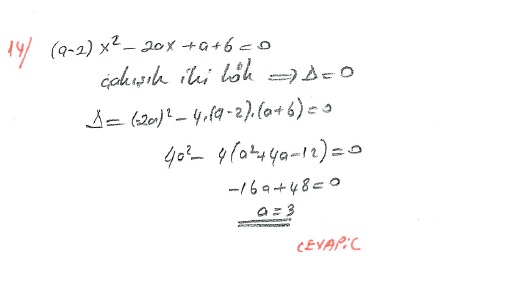 14/ (a-2) x² - 2ax + a + 6 = 0
çakışık iki kök ⇒ Δ = 0
Δ = (-2a)² - 4.(a-2).(a+6) = 0
4a² - 4(a²+4a-12) = 0
-16a + 48 = 0
a = 3
CEVAP: C